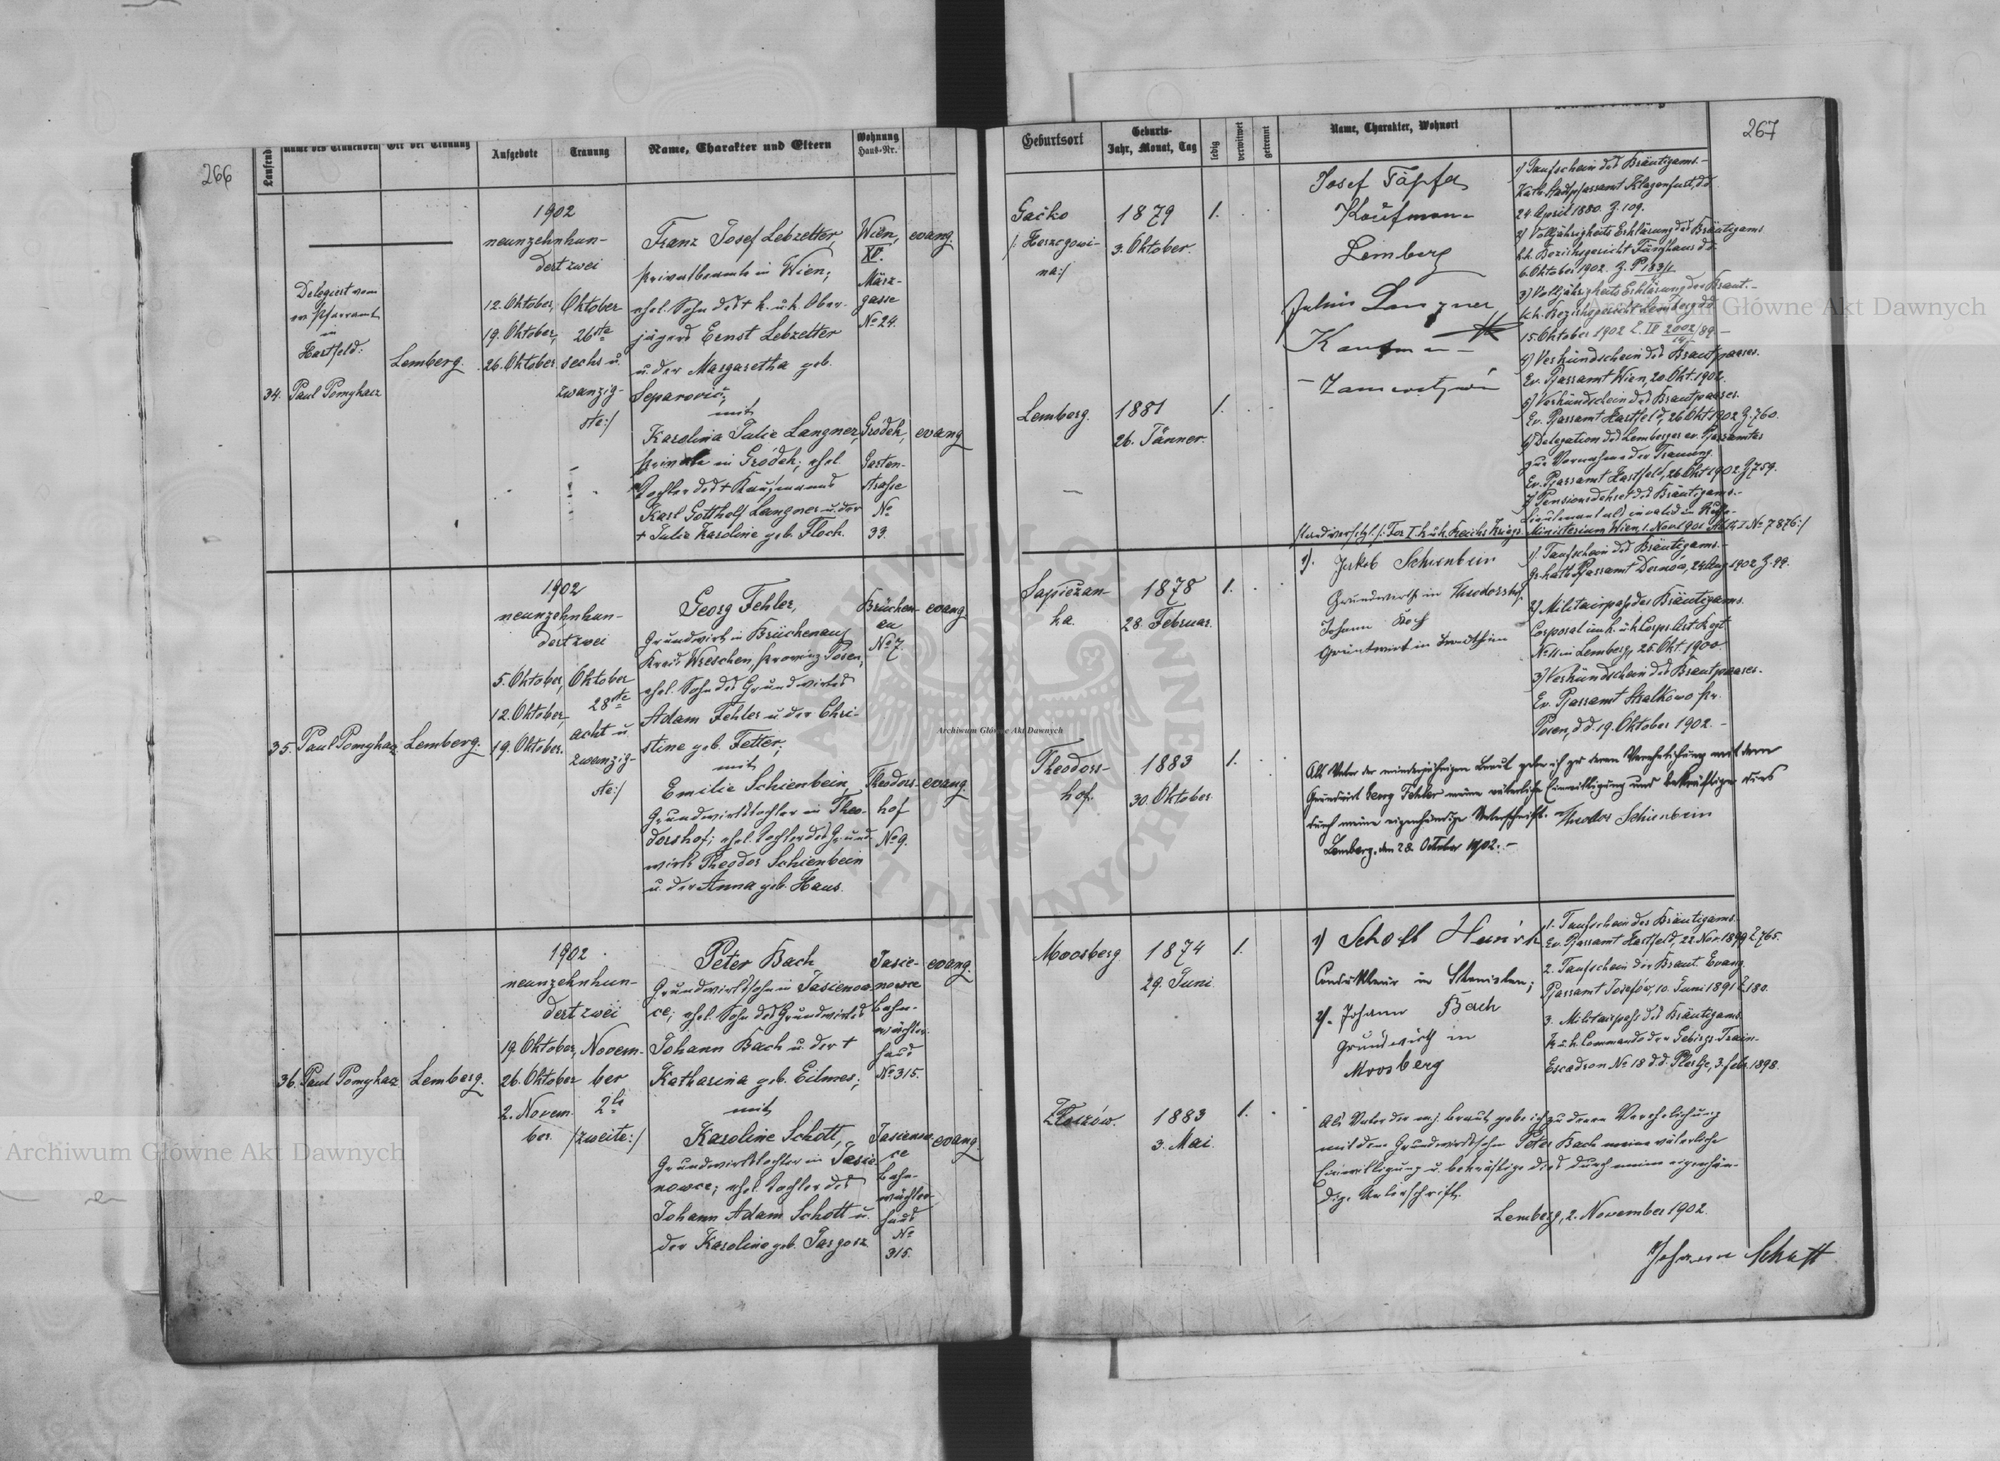 266
Laufende
Name des Trauenden
Ort der Trauung
Aufgebote
Trauung
Name, Charakter und Eltern
Wohnung
Haus-Nr.
34.
Delegiert vom
ev. Pfarramt
in
Hartfeld:
Paul Pomykacz
Lemberg.
1902
neunzehnhun-
dert zwei
12. Oktober,
19. Oktober,
26. Oktober
Oktober
26ste
sechs u.
zwanzig-
ste:/
Franz Josef Lebzelter,
Privatbeamte in Wien,
ehel. Sohn des + k. u. k. Ober-
jägers Ernst Lebzelter
u. der Margaretha geb.
Separović,
mit
Karolina Julie Langner,
Private in Gródek, ehel.
Tochter des + Kaufmanns
Karl Gotthelf Langner u. der
+ Julie Karoline geb. Floch.
Wien,
XV.
März-
gasse
No 24.
evang
Grodek,
Garten-
straße
No
33.
evang
35.
Paul Pomykacz
Lemberg.
1902
neunzehnhun-
dert zwei
5. Oktober,
12. Oktober,
19. Oktober.
Oktober
28ste
acht u.
zwanzig-
ste:/
Georg Fehler,
Grundwirt in Brückenau,
Kreis Wreschen, Provinz Posen,
ehel. Sohn des Grundwirtes
Adam Fehler u. der Chri-
stine geb. Fetter,
mit
Emilie Schienbein,
Grundwirtstochter in Theo-
dorshof; ehel. Tochter des Grund-
wirts Theodor Schienbein
u. der Anna geb. Haus.
Brücken-
au
No 7.
evang
Theodors-
hof
No 9.
evang.
36.
Paul Pomykacz
Lemberg.
1902.
neunzehnhun-
dert zwei
19. Oktober,
26. Oktober
2. Novem-
ber.
Novem-
ber
2te
/zweite:/
Peter Bach
Grundwirtssohn in Jasienow-
ce; ehel. Sohn des Grundwirtes
Johann Bach u. der +
Katharina geb. Eilmes;
mit
Karoline Schott,
Grundwirtstochter in Jasie-
nowce; ehel. Tochter des
Johann Adam Schott u.
der Karoline geb. Jargosz
Jasie-
nowce
Bahn-
wächter-
haus
No 315.
evang.
Jasienow-
ce
Bahn-
wächter-
haus
No
315.
evang
267
Geburtsort
Geburts-
Jahr, Monat, Tag
ledig
verwitwet
getrennt
Name, Charakter, Wohnort
Gačko
/: Herzegowi-
na:/
1879
3. Oktober.
1.
Lemberg.
1881
26. Jänner.
1.
Josef Töpfer
Kaufmann
Lemberg
Julius Langner
Kaufmann
1) Taufschein des Bräutigams.-
Kath. Stadtpfarramt Klagenfurt, dd
24 April 1880. Z. 109.
2) Volljährigkeits Erklärung des Bräutigams
k.k. Bezirksgericht Fünfhaus dd.
6. Oktober 1902. Z. P 183/2
3) Volljährigkeits Erklärung der Braut.-
k.k. Bezirksgericht Lemberg dd
15. Oktober 1902
4) Verkündschein des Brautpaares.
Ev. Pfarramt Wien, 20. Okt. 1902.
5) Verkündschein des Brautpaares.
Ev. Pfarramt Hartfeld, 26 Okt 1902 Z. 760.
6) Delegation des Lemberger ev. Pfarramtes
zur Vornahme der Trauung.
Ev. Pfarramt Hartfeld, 26 Okt 1902 Z 759.
7) Pensionsdekret des Bräutigams.-
Ministerium Wien, 1. Nov 1901
No 7876:/
Sapieżan-
ka.
1878
28. Februar.
1.
Theodors-
hof.
1883
30. Oktober
1.
1). Jakob Schienbein
Grundwirth in Theodorshof.
Johann Koch
Grundwirt in
1). Taufschein des Bräutigams.-
gr. kath. Pfarramt Dernów, 24 Aug 1902 Z. 99.
2) Militairpass des Bräutigams.
Corporal im k. u. k. Corps Art. Regt.
No 11 in Lemberg, 25. Okt. 1900.
3) Verkündschein des Brautpaares.
Ev. Pfarramt Stralkowo Pr.
Posen, d.d. 19. Oktober 1902.-
Als Vater der minderjährigen Braut gebe ich zu deren Verehelichung mit dem
Grundwirt Georg Fehler meine väterliche Einwilligung und bekräftige dies
durch meine eigenhändige Unterschrift. Theodor Schienbein
Lemberg, den 28 October 1902.-
Moosberg
1874
29. Juni
1.
Złoczów.
1883
3. Mai.
1.
1) Schott Heinrich
Condukteur in Stanislau;
2). Johann Bach
Grundwirth in
Moosberg
1. Taufschein des Bräutigams.
Ev. Pfarramt Hartfeld, 22 Nov. 1899 Z 765.
2. Taufschein der Braut. Evang.
Pfarramt Josefów, 10. Juni 1891 Z 180.
3. Militairpass des Bräutigams
k. u. k. Commando der Gebirgs-Train-
Escadron No 18 d.d. Plevlje, 3. Feb. 1898.
Als Vater der mj. Braut gebe ich zu deren Verehelichung
mit dem Grundwirtssohn Peter Bach meine väterliche
Einwilligung u. bekräftige dies durch meine eigenhän-
dige Unterschrift.
Lemberg, 2. November 1902.
Johann Schott
Archiwum Główne Akt Dawnych